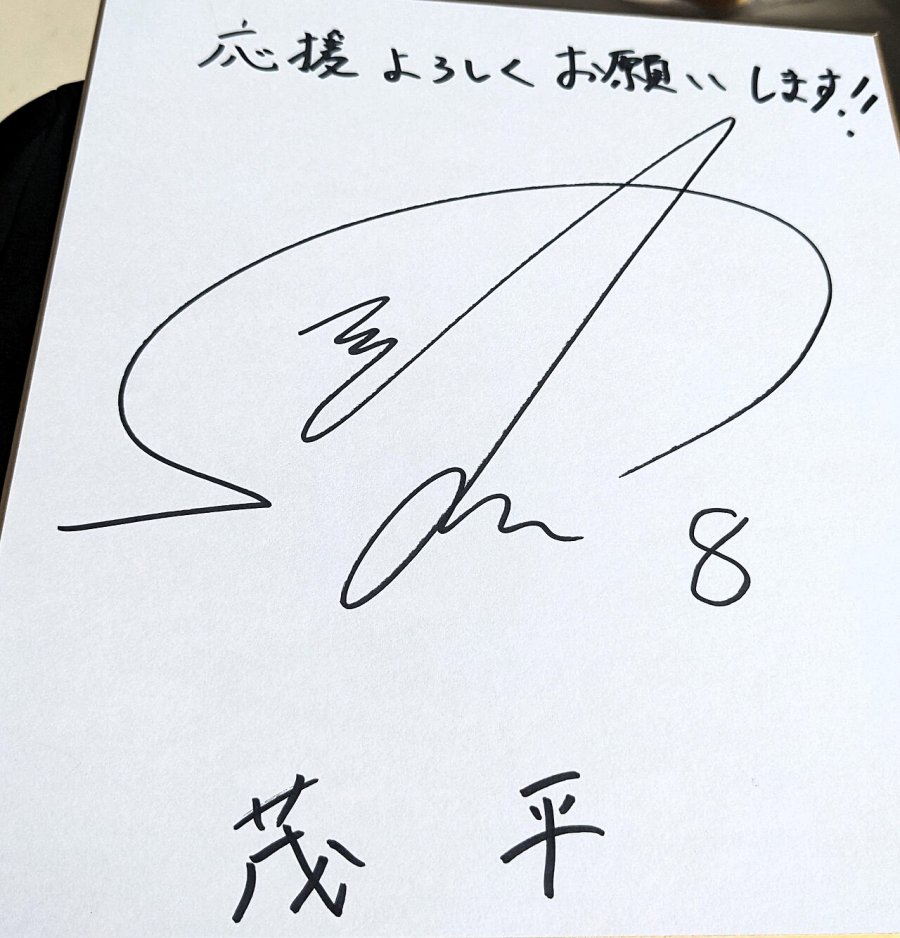 応援よろしくお願いします!!
8
茂 平